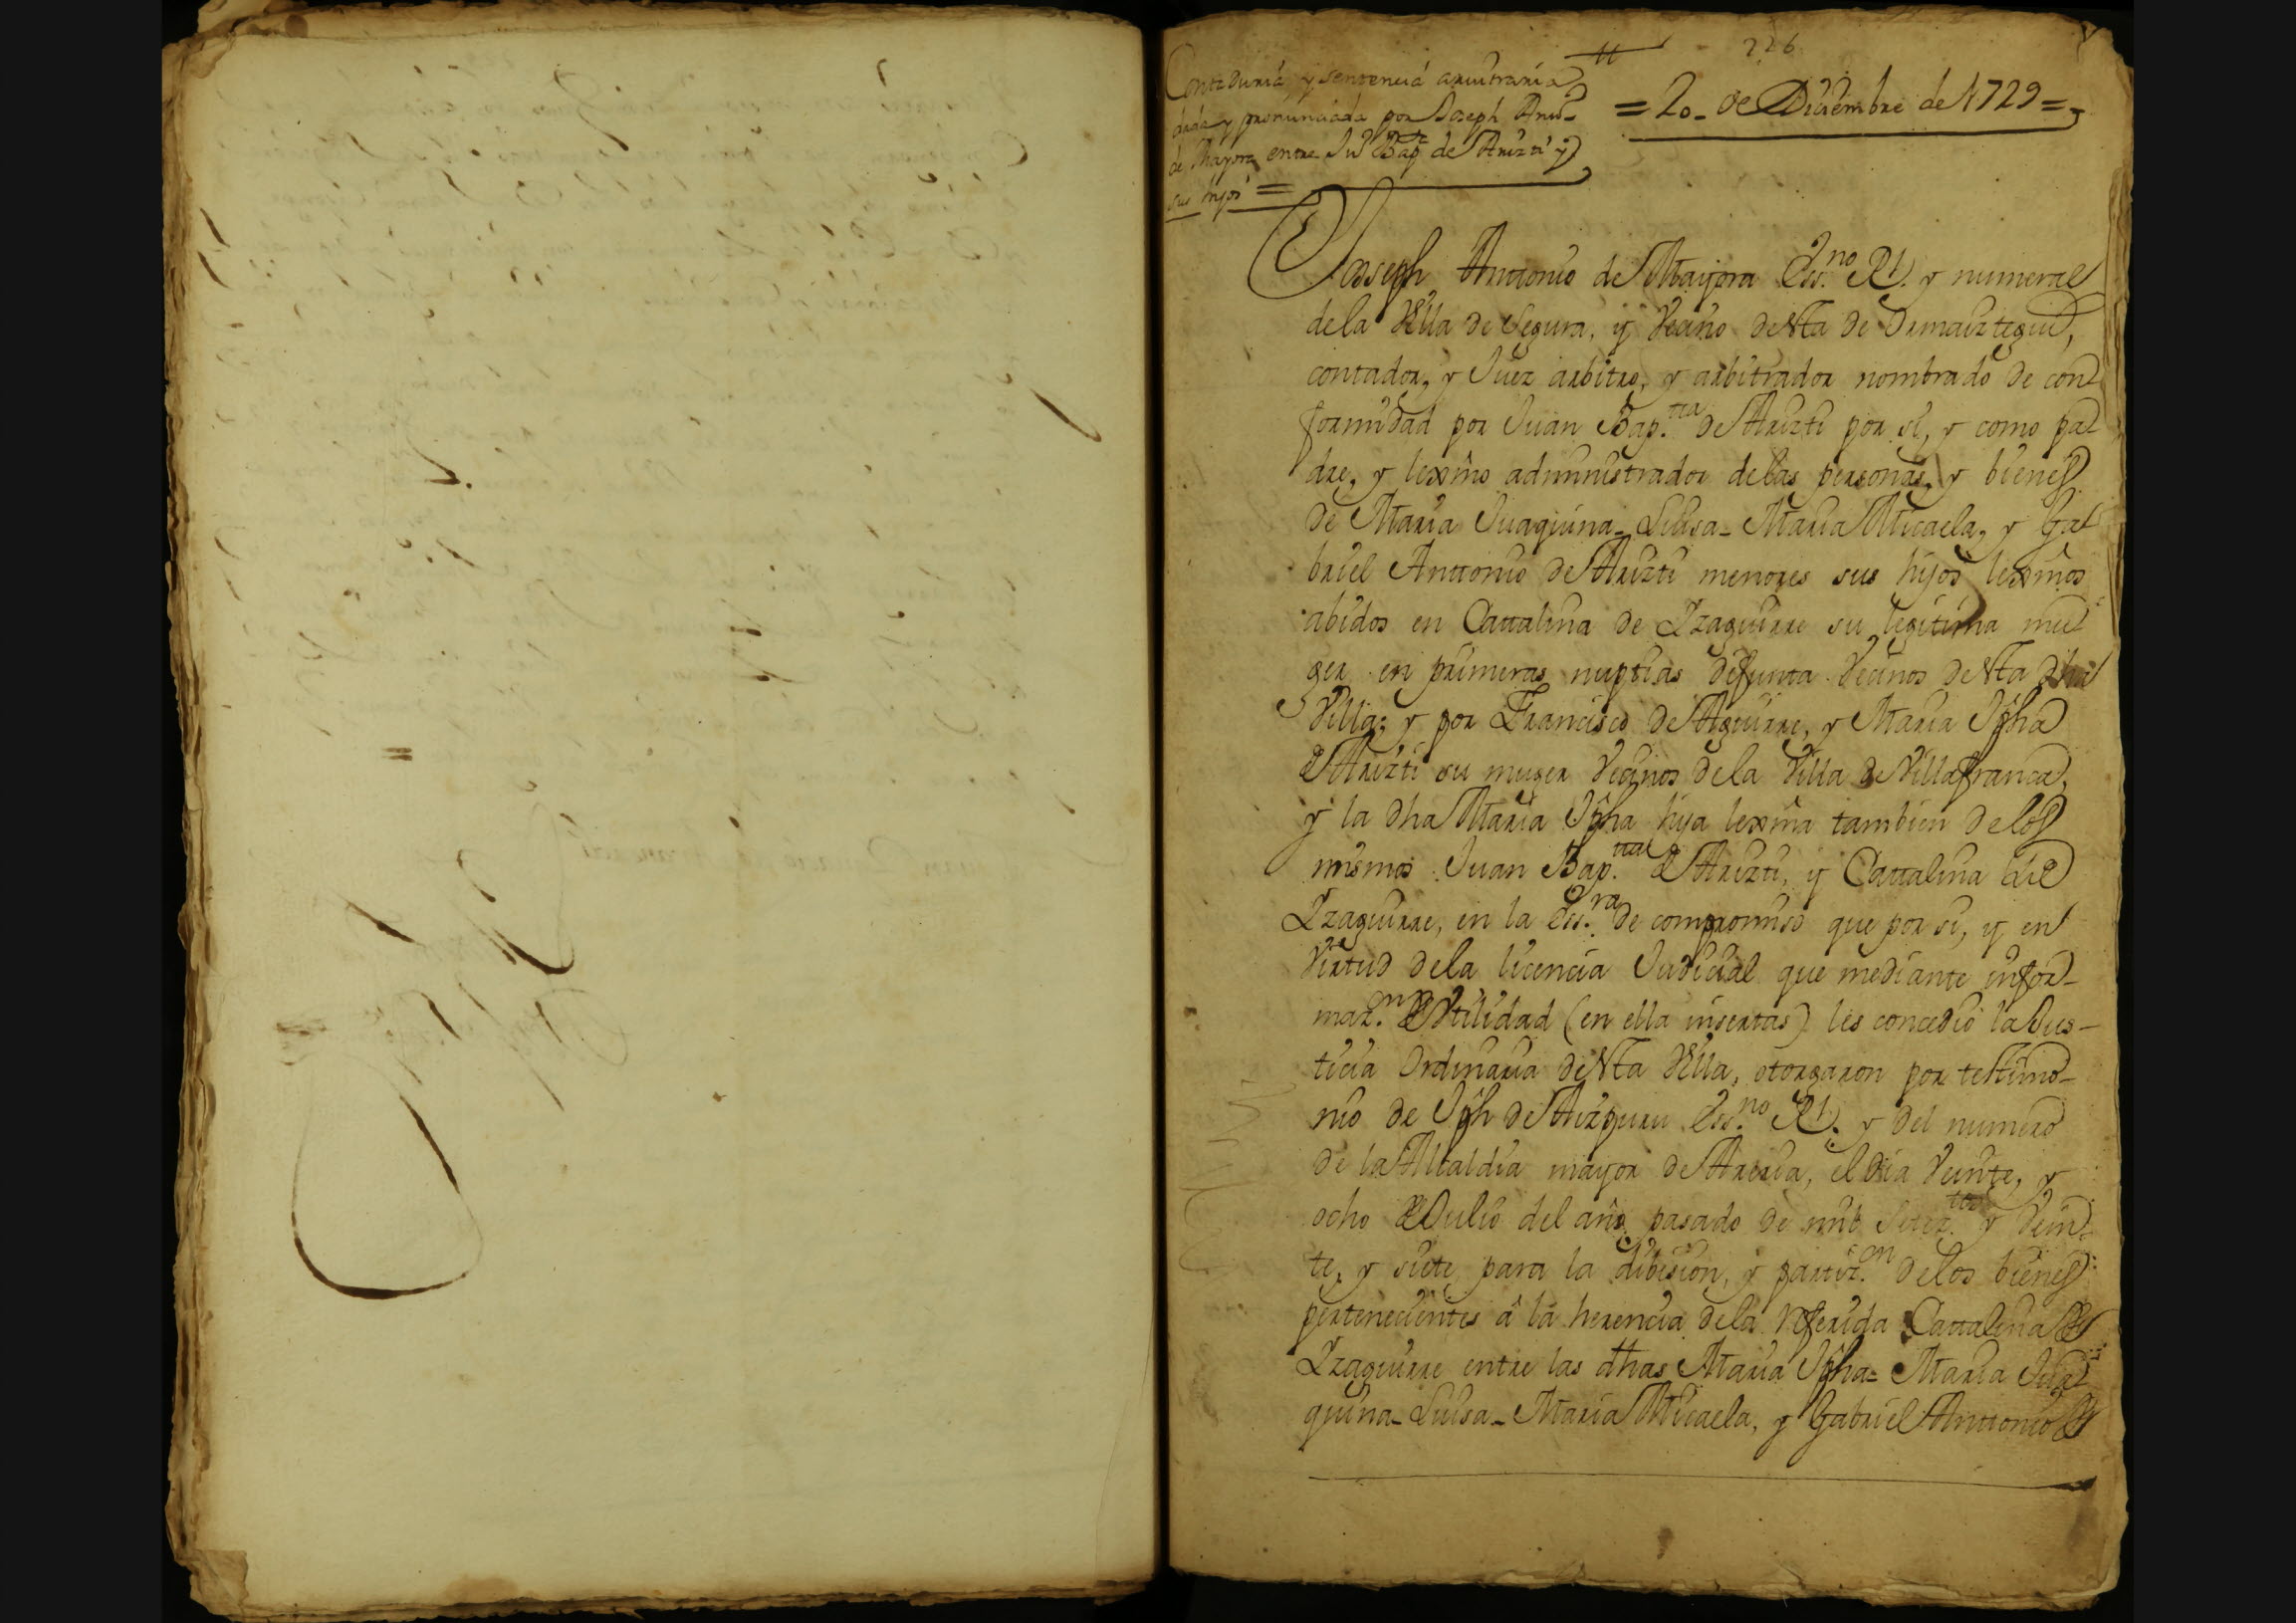 226
Contaduria y sentencia arvitraria
dada y pronunciada por Joseph Antt.º
de Mayora entre Juº Bapta de Arizti y
sus hijos =
= 20_ de Diciembre de 1729 =
Joseph Anttonio de Mayora Ess.no Rl. y numeral
dela Villa de Segura, y Vecino desta de Ormaiztegui,
contador, y Juez arbitro, y arbitrador nombrado de con
formidad por Juan Bap.tta de Arizti por si, y como pa
dre, y lexmo administrador delas personas, y bienes
de Maria Juaquina_ Luisa_ Maria Micaela, y Ga
briel Anttonio de Arizti menores sus hijos lexmos
abidos en Cattalina de Yzaguirre su legitima mu
ger en primeras nuptias defunta Vecinos desta dha
Villa; y por Francisco de Aguirre, y Maria Jpha
de Arizti su muger Vecinos dela Villa de Villafranca,
y la dha Maria Jpha hija lexma tambien delos
mismos Juan Bap.tta de Arizti, y Cattalina de
Yzaguirre, en la Ess.ra de compromiso que por si, y en
Virtud dela licencia Judicial que mediante infor_
maz.on de Utilidad (en ella insertas) les concedio la Jus_
ticia Ordinaria desta Villa, otorgaron por testimo_
nio de Jph de Aizpuru Ess.no Rl. y del numero
de la Alcaldia mayor de Areria, el dia Veinte, y
ocho de Julio del año pasado de mil Setez.tos y Vein
te, y siete, para la dibision, y partiz.on delos bienes
pertenecientes â la herencia dela referida Cattalina de
Yzaguirre entre las dhas Maria Jpha= Maria Jua
quina_ Luisa_ Maria Micaela, y Gabriel Anttonio de